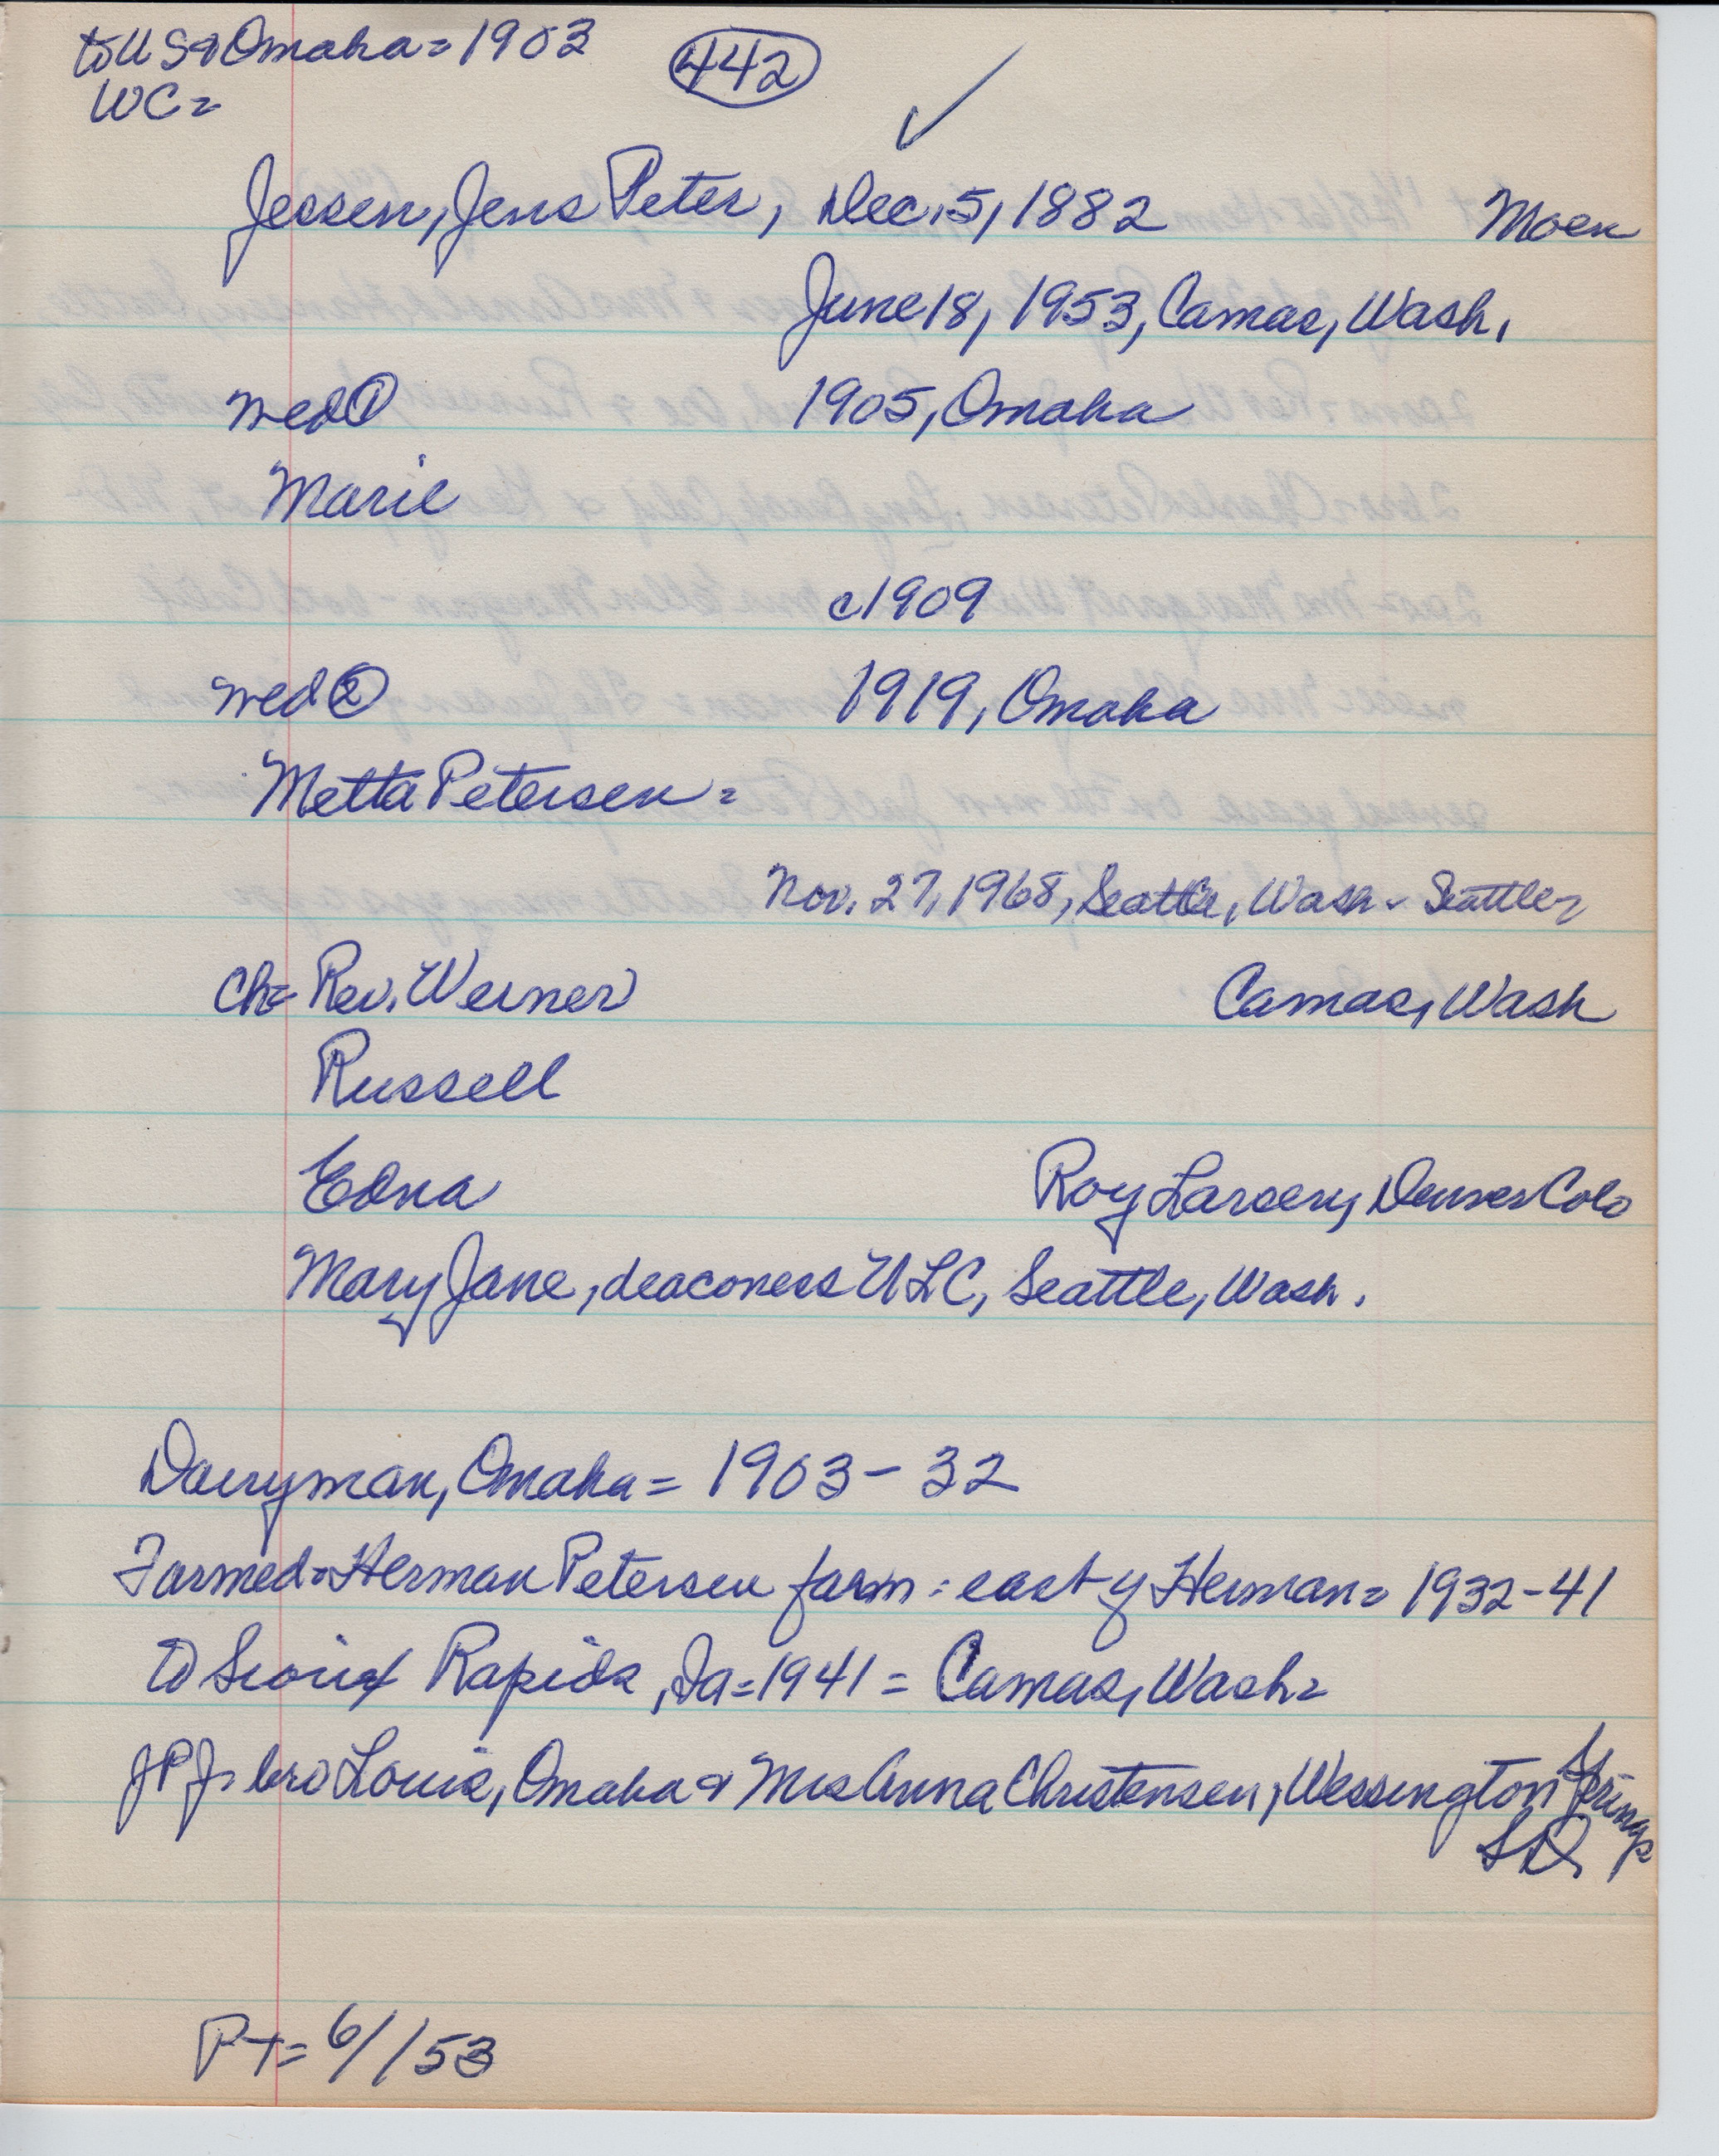 to US & Omaha = 1903
442 ✓
WC =
Jessen, Jens Peter, Dec. 5, 1882 Moen
June 18, 1953, Camas, Wash.
wed ① 1905, Omaha
Marie
c1909
wed ② 1919, Omaha
Metta Petersen =
Nov. 27, 1968, Seattle, Wash - Seattle =
Ch = Rev. Werner Camas, Wash
Russell
Edna Roy Larsen, Denver Colo
Mary Jane, deaconess ULC, Seattle, Wash.
Dairyman, Omaha = 1903 - 32
Farmed = Herman Petersen farm : east of Herman = 1932 - 41
to Sioux Rapids, Ia = 1941 = Camas, Wash =
JPJ = bro Louis, Omaha & Mrs Anna Christensen, Wessington Springs
SD
PT = 6/ /53